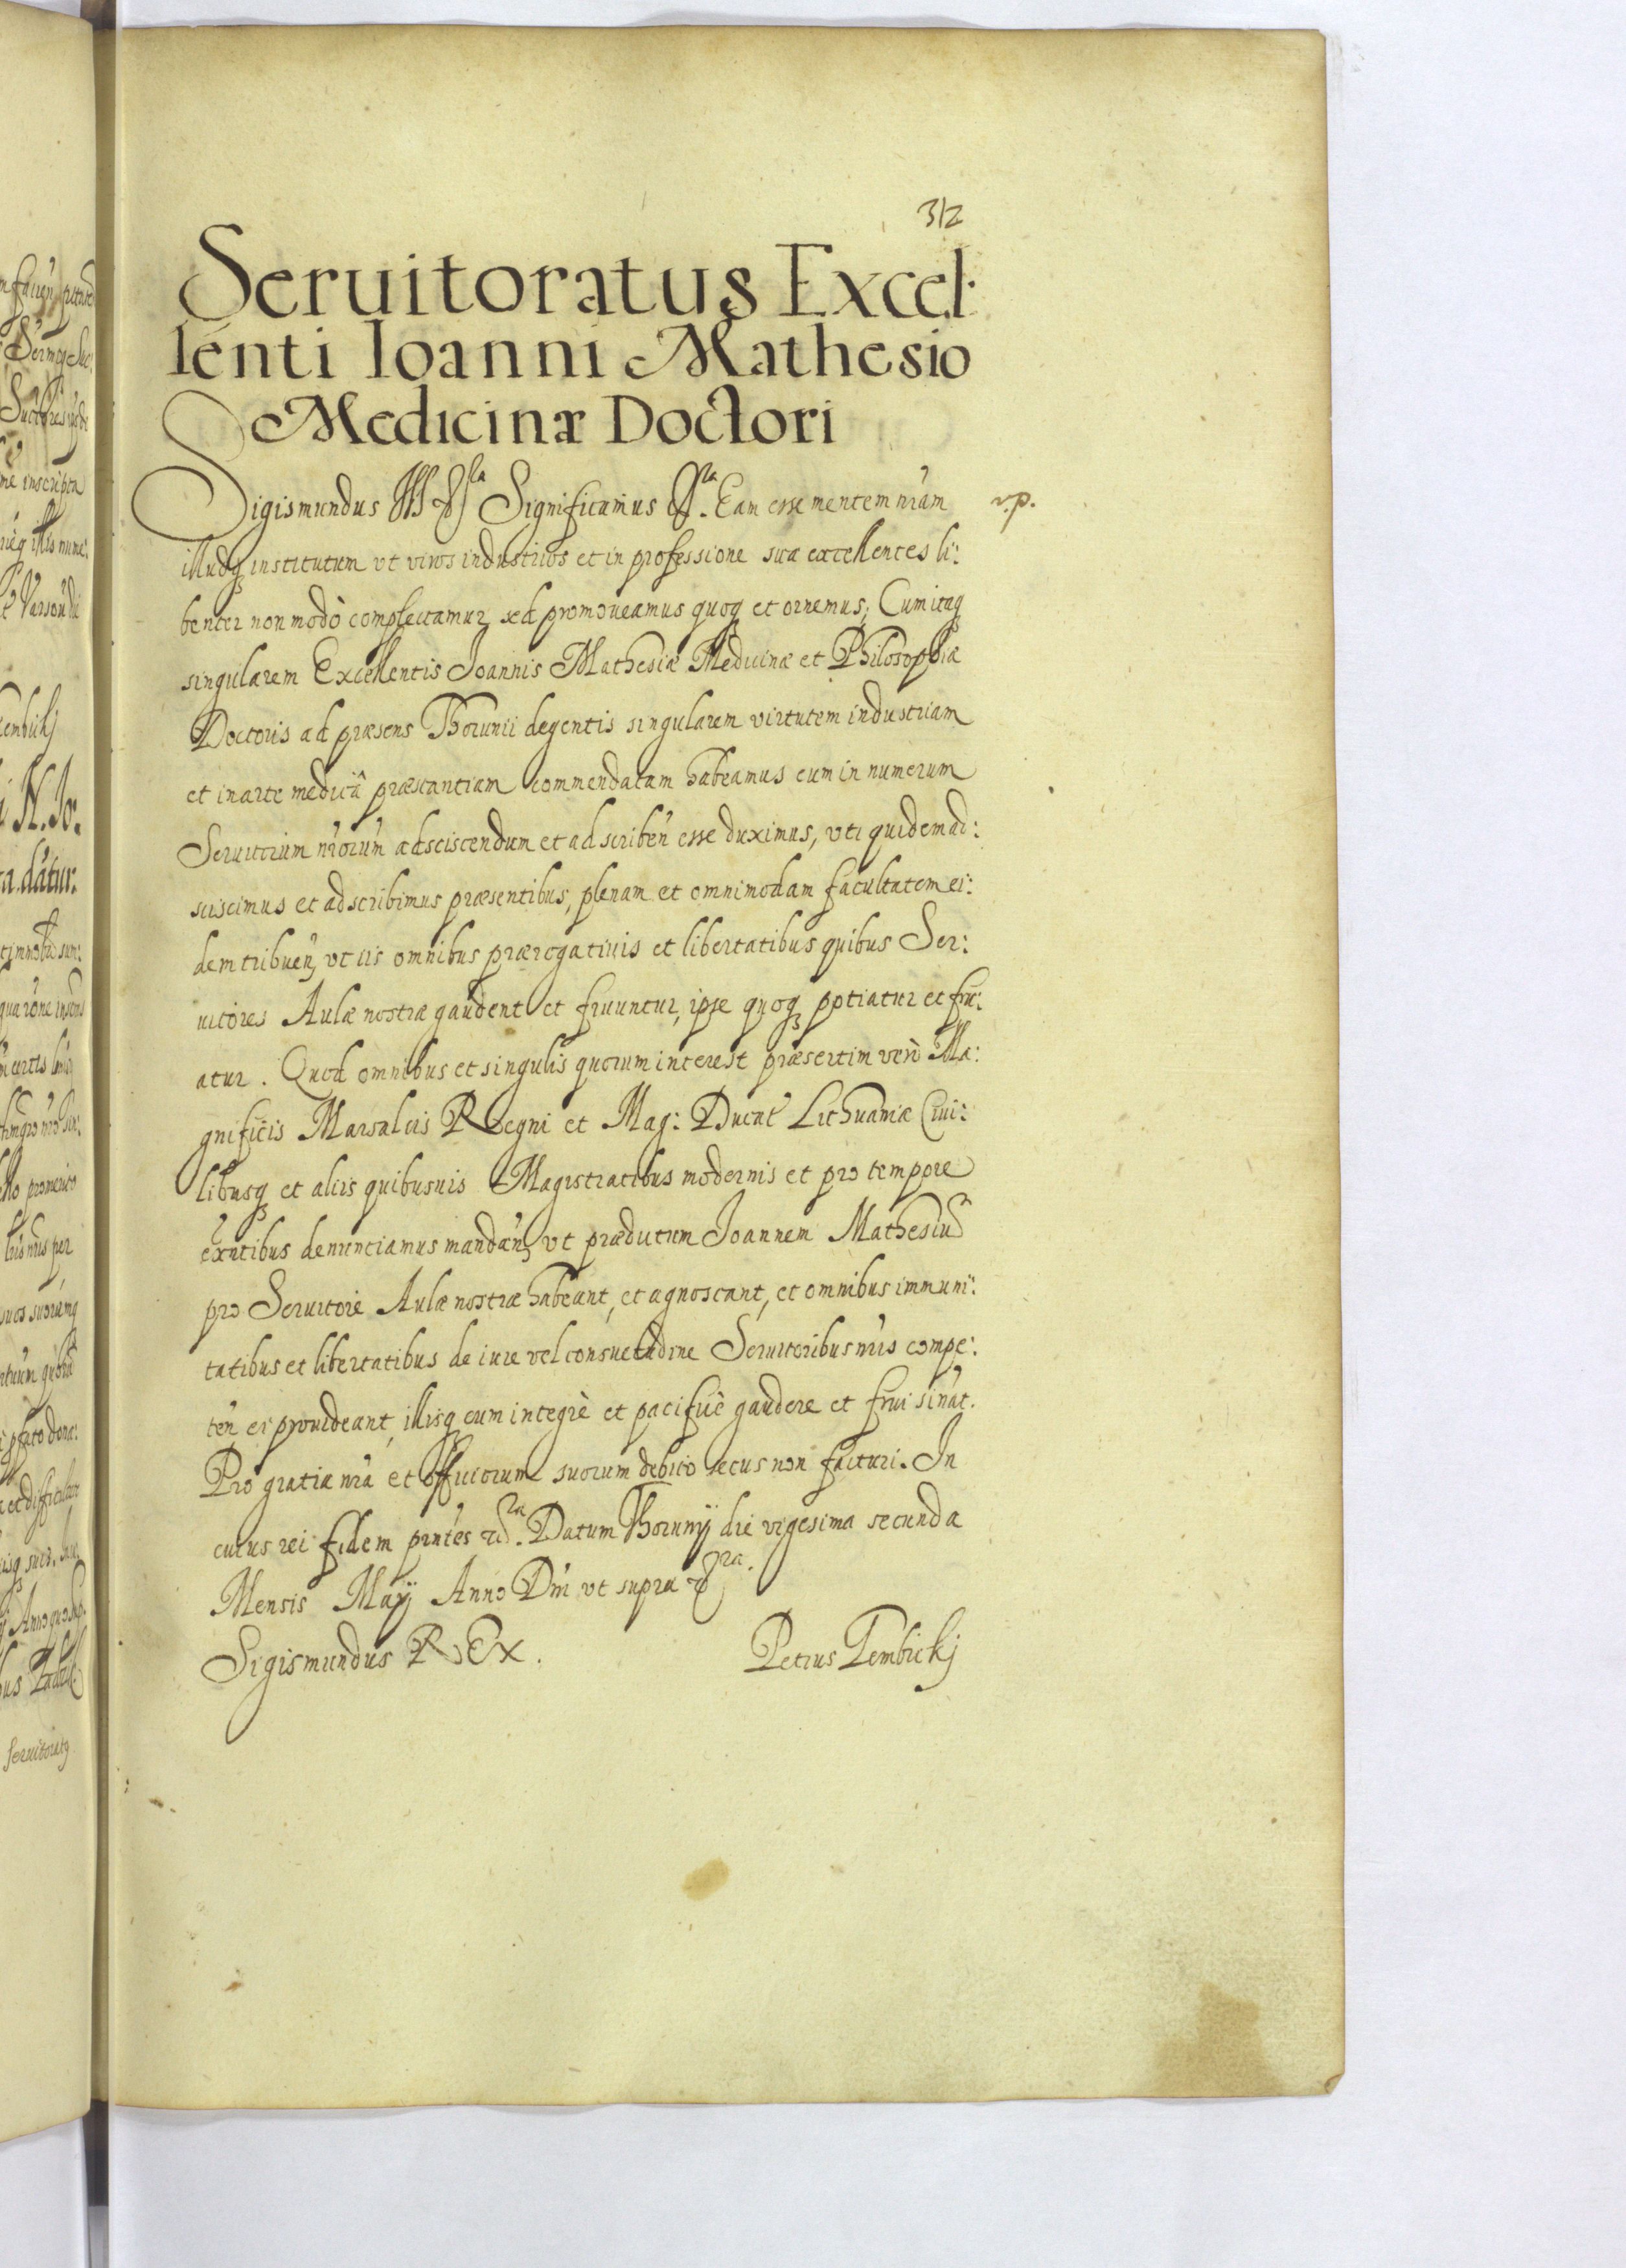 312
Seruitoratus Excel:
lenti Ioanni Mathesio
Medicinæ Doctori
Sigismundus III Significamus Eam esse mentem nr̃am
v.p.
illudq institutum vt viros industrios et in professione sua excellentes li:
benter non modò complectamur, sed promoveamus quoq et ornemus, Cum itaq
singularem Excellentis Joannis Mathesiæ Medicinæ et Philosophiæ
Doctoris ad præsens Thorunii degentis singularem virtutem industriam
et in arte medicâ præstantiam commendatam habeamus eum in numerum
Seruitorum nr̃orum adsciscendum et adscriben̄ esse duximus, vti quidem ad:
sciscimus et adscribimus præsentibus, plenam et omnimodam facultatem ei:
dem tribuen̄, vt iis omnibus prærogatiuis et libertatibus quibus Ser:
uitores Aulæ nostræ gaudent et fruuntur, ipse quoq potiatur et fru:
atur. Quod omnibus et singulis quorum interest præsertim verò Ma:
gnificis Marsalcis Regni et Mag: Ducat Lithuaniæ Ciui:
libusq et aliis quibusuis Magistratibus modernis et pro tempore
exñtibus denuntiamus mandan̄, vt prædictum Joannem Mathesiū
pro Seruitore Aulæ nostræ habeant, et agnoscant, et omnibus immuni:
tatibus et libertatibus de iure vel consuetudine Seruitoribus nr̃is compe:
ten̄ ei prouideant, illisq eum integrè et pacificè gaudere et frui sinat.
Pro gratia nr̃a et officiorum suorum debito secus non facturi. In
cuius rei fidem pr̃ntes Datum Thorunÿ die vigesima secunda
Mensis Maÿ Anno Dn̄i vt supra
Sigismundus REx.
Petrus Tembickj